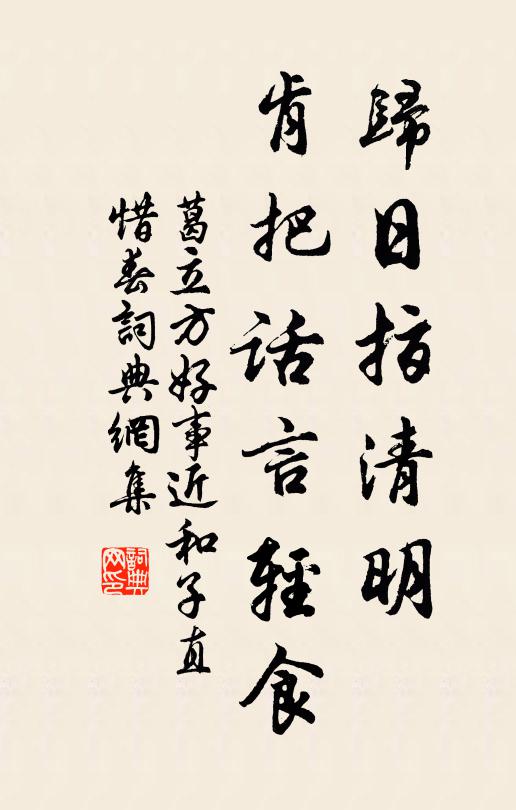 歸日指清明
肯把話言輕食
葛立方好事近和子直
惜春詞典網集
詞典网印